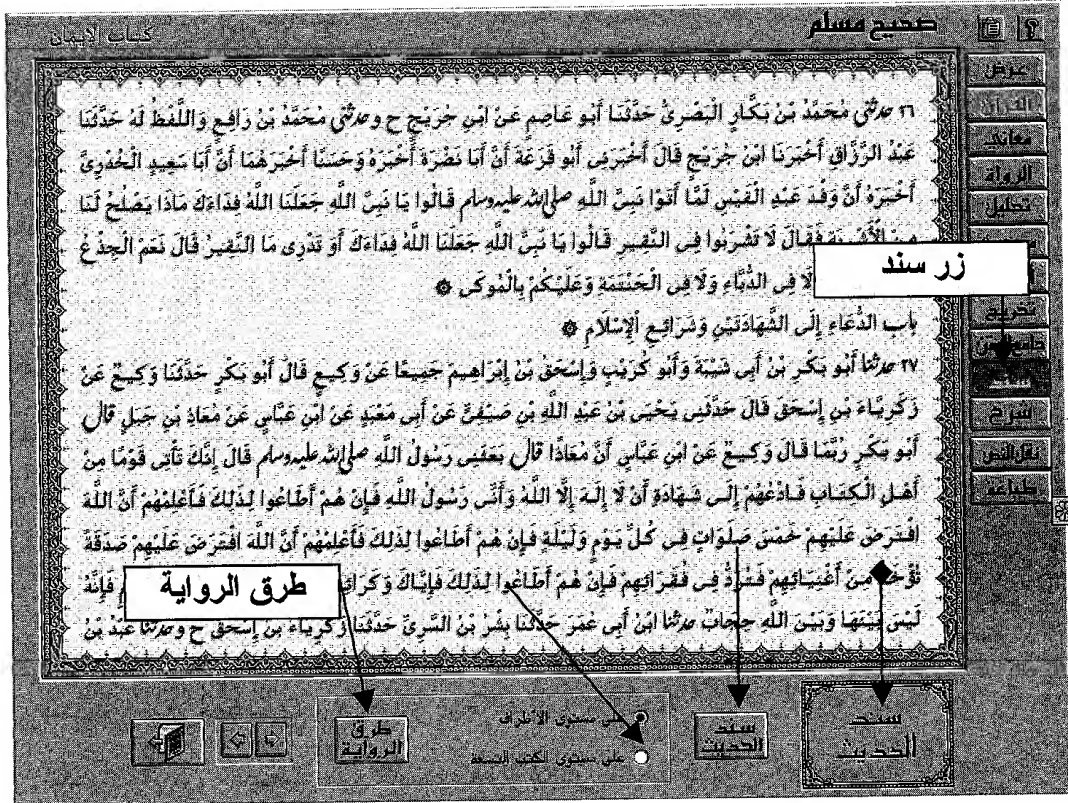 كتاب الإيمان
صحيح مسلم
عرض
القرآن
معاني
الرواة
تحليل
تخريج
سند
شرح
نقل النص
طباعة
٢٦ حدثني مُحَمَّدُ بْنُ بَكَّارٍ الْبَصْرِيُّ حَدَّثَنَا أَبُو عَاصِمٍ عَنْ ابْنِ جُرَيْجٍ ح و حدثني مُحَمَّدُ بْنُ رَافِعٍ وَاللَّفْظُ لَهُ حَدَّثَنَا
عَبْدُ الرَّزَّاقِ أَخْبَرَنَا ابْنُ جُرَيْجٍ قَالَ أَخْبَرَنِي أَبُو قَزَعَةَ أَنَّ أَبَا نَضْرَةَ أَخْبَرَهُ وَحَسَنًا أَخْبَرَهُمَا أَنَّ أَبَا سَعِيدٍ الْخُدْرِيَّ
أَخْبَرَهُ أَنَّ وَفْدَ عَبْدِ الْقَيْسِ لَمَّا أَتَوْا نَبِيَّ اللَّهِ صلى الله عليه وسلم قَالُوا يَا نَبِيَّ اللَّهِ جَعَلَنَا اللَّهُ فِدَاءَكَ مَاذَا يَصْلُحُ لَنَا
مِنْ الْأَشْرِبَةِ فَقَالَ لَا تَشْرَبُوا فِي النَّقِيرِ قَالُوا يَا نَبِيَّ اللَّهِ جَعَلَنَا اللَّهُ فِدَاءَكَ أَوَ تَدْرِي مَا النَّقِيرُ قَالَ نَعَمْ الْجِذْعُ
زر سند
لَا فِي الدُّبَّاءِ وَلَا فِي الْحَنْتَمَةِ وَعَلَيْكُمْ بِالْمُوكَى
باب الدُّعَاءِ إِلَى الشَّهَادَتَيْنِ وَشَرَائِعِ الْإِسْلَامِ
٢٧ حدثنا أَبُو بَكْرِ بْنُ أَبِي شَيْبَةَ وَأَبُو كُرَيْبٍ وَإِسْحَقُ بْنُ إِبْرَاهِيمَ جَمِيعًا عَنْ وَكِيعٍ قَالَ أَبُو بَكْرٍ حَدَّثَنَا وَكِيعٌ عَنْ
زَكَرِيَّاءَ بْنِ إِسْحَقَ قَالَ حَدَّثَنِي يَحْيَى بْنُ عَبْدِ اللَّهِ بْنِ صَيْفِيٍّ عَنْ أَبِي مَعْبَدٍ عَنْ ابْنِ عَبَّاسٍ عَنْ مُعَاذِ بْنِ جَبَلٍ قال
أَبُو بَكْرٍ رُبَّمَا قَالَ وَكِيعٌ عَنْ ابْنِ عَبَّاسٍ أَنَّ مُعَاذًا قال بَعَثَنِي رَسُولُ اللَّهِ صلى الله عليه وسلم قَالَ إِنَّكَ تَأْتِي قَوْمًا مِنْ
أَهْلِ الْكِتَابِ فَادْعُهُمْ إِلَى شَهَادَةِ أَنْ لَا إِلَهَ إِلَّا اللَّهُ وَأَنِّي رَسُولُ اللَّهِ فَإِنْ هُمْ أَطَاعُوا لِذَلِكَ فَأَعْلِمْهُمْ أَنَّ اللَّهَ
افْتَرَضَ عَلَيْهِمْ خَمْسَ صَلَوَاتٍ فِي كُلِّ يَوْمٍ وَلَيْلَةٍ فَإِنْ هُمْ أَطَاعُوا لِذَلِكَ فَأَعْلِمْهُمْ أَنَّ اللَّهَ افْتَرَضَ عَلَيْهِمْ صَدَقَةً
تُؤْخَذُ مِنْ أَغْنِيَائِهِمْ فَتُرَدُّ فِي فُقَرَائِهِمْ فَإِنْ هُمْ أَطَاعُوا لِذَلِكَ فَإِيَّاكَ وَكَرَائِ فَإِنَّهُ
طرق الرواية
لَيْسَ بَيْنَهَا وَبَيْنَ اللَّهِ حِجَابٌ حدثنا ابْنُ أَبِي عُمَرَ حَدَّثَنَا بِشْرُ بْنُ السَّرِيِّ حَدَّثَنَا زَكَرِيَّاءُ بْنُ إِسْحَقَ ح و حدثنا عَبْدُ بْنُ
سند
الحديث
سند
الحديث
على مستوى الأطراف
على مستوى الكتب التسعة
طرق
الرواية